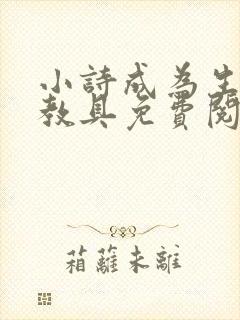 小詩成為生
教具免費閱
箱蘺未離